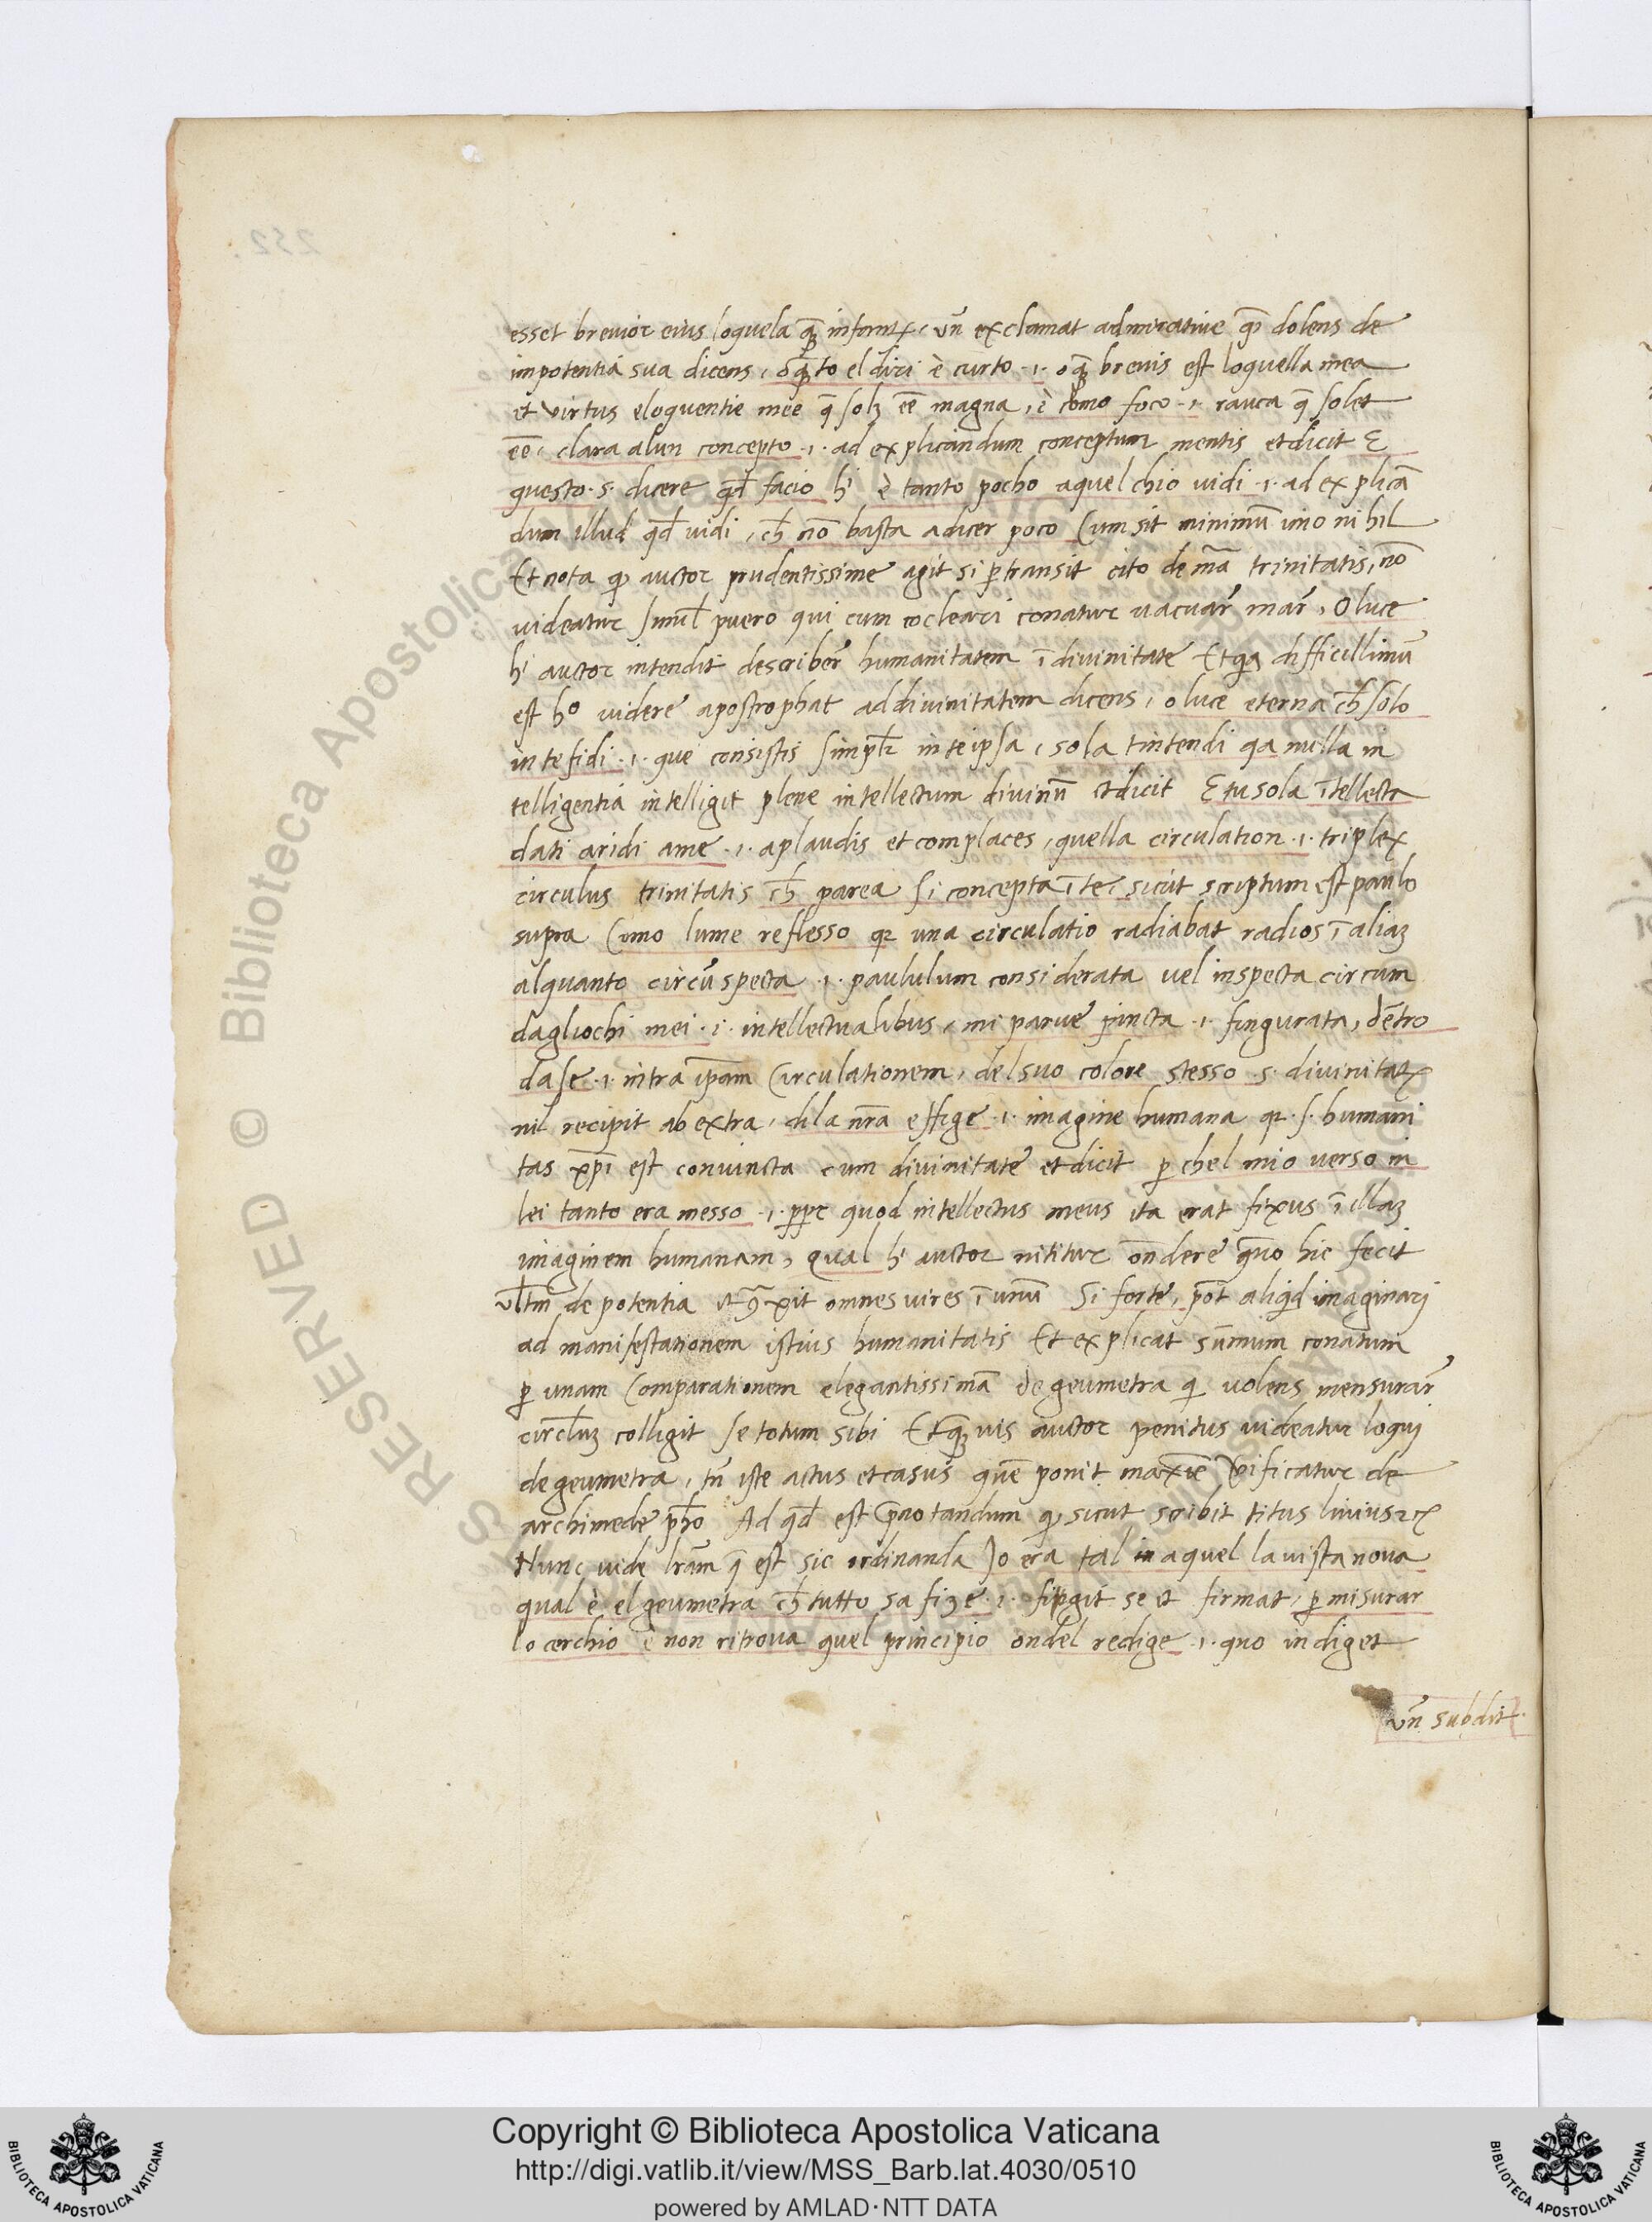 esset brevior eius loquela quā infantꝭ, vñ exclamat admirative qͣ dolens de
impotentia sua dicens, o qͣto el diri è curto .i. o qͣ brevis est loquella mea
et virtus eloquentie mee q̄ solꝫ eē magna, è como foco .i. rauca q̄ solet
eē, clara alun concepto .i. ad explicandum conceptum mentis et dicit E
questo .s. dicere qd̄ facio h' è tanto pocho aquel chio vidi .i. ad explicā
dum illud qd̄ vidi, ch̄ nō basta adicer poco Cum sit minimū imo nihil
Et nota qͥ auctor prudentissime agit si ꝑtransit cito de mā trinitatis, nō
videatur simil̄ puero qui cum cocleari conatur vacuar̄ mar̄, O luce
h' auctor intendit describer̄ humanitatem ī divinitate Et qa difficillimū
est ho videre apostrophat addivinitatem dicens, o luce eterna ch̄ solo
in te sidi .i. que consistis simpl̄r in te ipsa, sola tintendi qa nulla in
telligentia intelligit plene intellectum divinū et dicit E tu sola ītellecta
dati aridi ame .i. aplaudis et complaces, quella circulation .i. triplex
circulus trinitatis ch̄ parea si concepta ī te, sicut scriptum est paulo
supra Como lume reflesso qꝛ una circulatio radiabat radios ī aliaꝫ
alquanto circūspecta .i. paululum considerata vel inspecta circum
dagliochi mei .i. intellectualibus, mi parve pincta .i. fingurata, dētro
dase .i. intra ip̄am Circulationem, del suo colore stesso .s. divinitatꝭ
nil recipit ab extra, di la nr̄a effige .i. imagine humana qꝛ .s. humani
tas xp̄i est convincta cum divinitate et dicit ꝑ chel mio verso in
lei tanto era messo .i. ꝓpt quod intellectus meus ita erat fixus ī illaꝫ
imaginem humanam, qual h' auctor nititur on̄dere quō hic fecit
vltm̄ de potentia et ꝯ̄xit omnes vires ī unū Si forte, pōt aliqd imaginari
ad manifestationem istius humanitatis Et explicat summum conatum
ꝑ unam Comparationem elegantissimā de geumetra qͥ volens mensurar̄
circl̄uꝫ colligit se totum sibi Et qͣvis auctor penitus videatur loqui
de geumetra, tn̄ iste actus et casus quē ponit maxīe v̄ificatur de
archimede ph̄o Ad qd̄ est p̄notandum qͥ sicut scribit titus livius ⁊c
Nunc vide lr̄am q̄ est sic ordinanda Io era tal in aquel la vista nova
qual è el geumetra ch̄ tutto sa fige .i. fingit se et firmat, ꝑ misurar
lo cerchio e non ritrova quel principio ondel redige .i. quo indiget
vn̄ subdit
Copyright © Biblioteca Apostolica Vaticana
http://digi.vatlib.it/view/MSS_Barb.lat.4030/0510
powered by AMLAD·NTT DATA
BIBLIOTECA APOSTOLICA VATICANA
BIBLIOTECA APOSTOLICA VATICANA